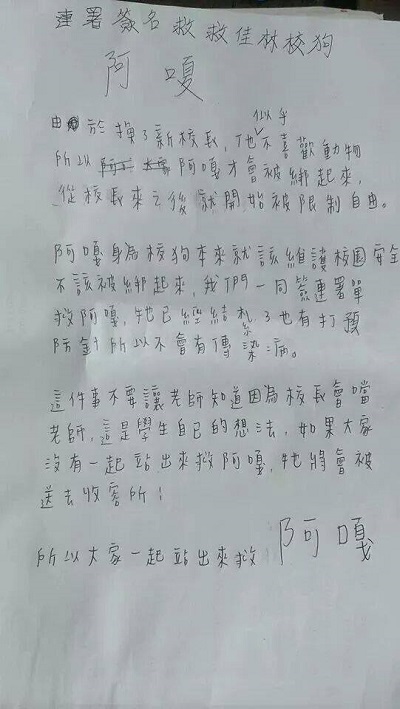 連署簽名救救佳林校狗
阿嘎
由於換了新校長,他似乎不喜歡動物
所以阿嘎才會被綁起來,
從校長來之後就開始被限制自由。
阿嘎身為校狗本來就該維護校園安全
不該被綁起來,我們一同簽連署單
救阿嘎,牠已經結紮了也有打預
防針所以不會有傳染病。
這件事不要讓老師知道因為校長會噹
老師,這是學生自己的想法,如果大家
沒有一起站出來救阿嘎,牠將會被
送去收容所!
所以大家一起站出來救 阿嘎